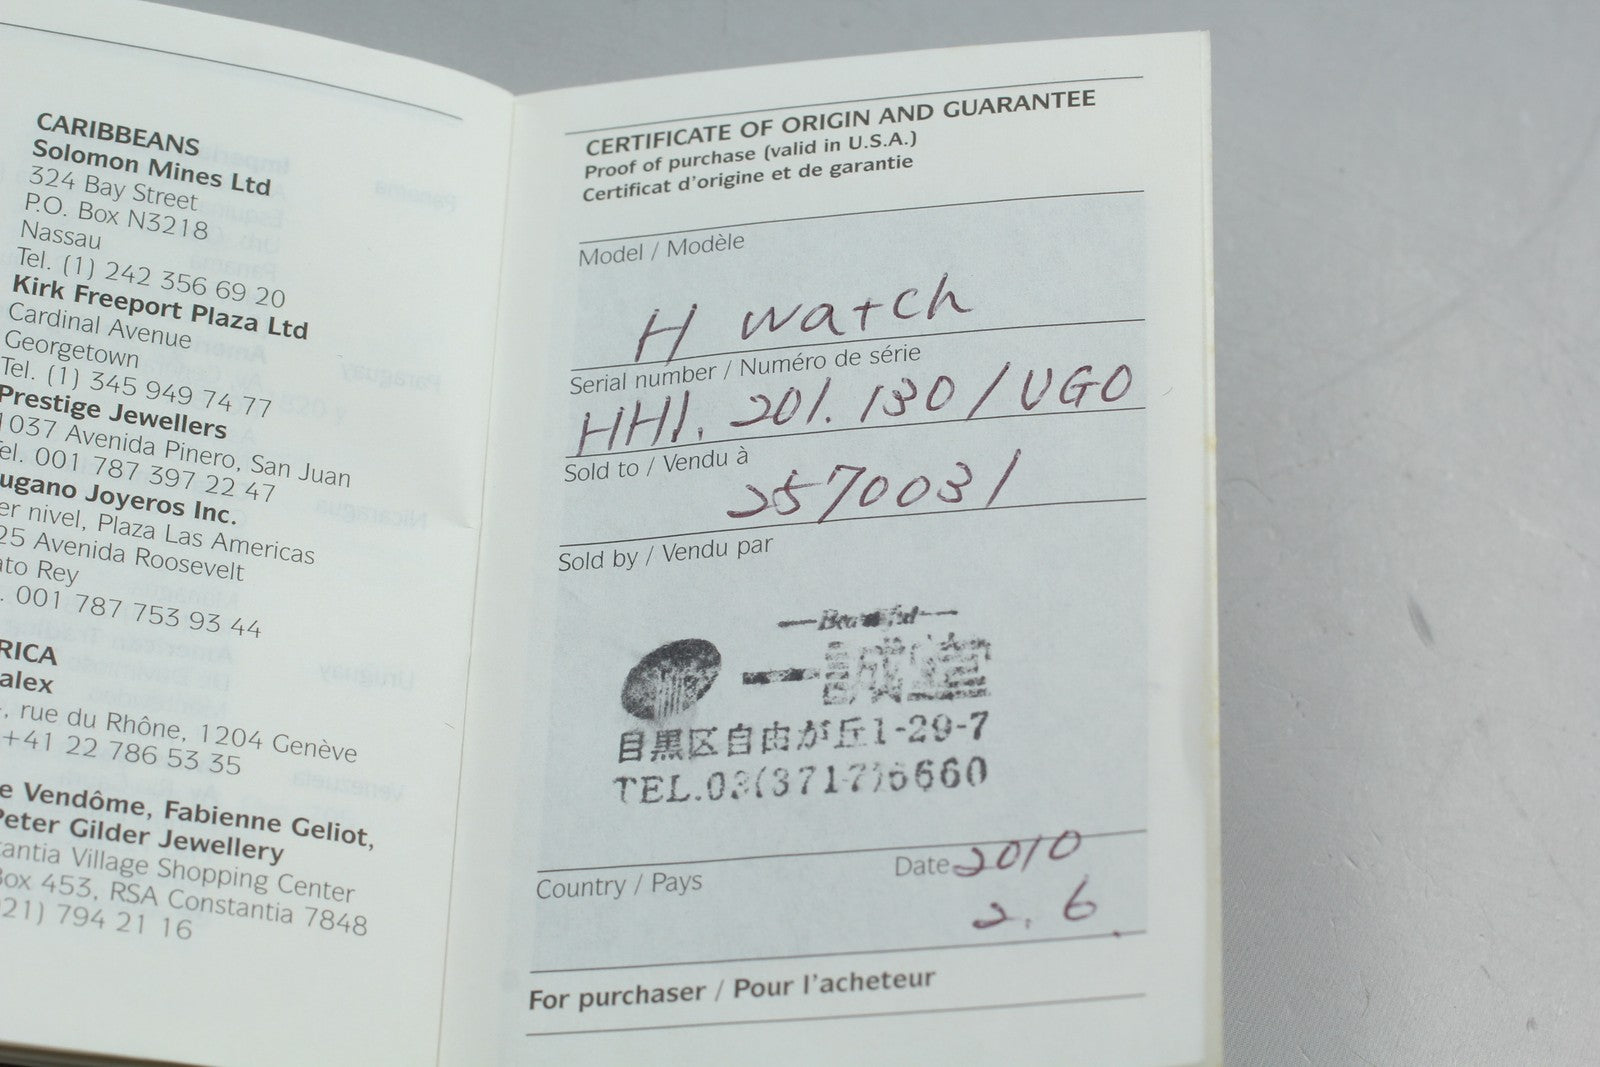 CARIBBEANS
Solomon Mines Ltd
324 Bay Street
P.O. Box N3218
Nassau
Tel. (1) 242 356 69 20
Kirk Freeport Plaza Ltd
Cardinal Avenue
Georgetown
Tel. (1) 345 949 74 77
Prestige Jewellers
1037 Avenida Pinero, San Juan
el. 001 787 397 22 47
ugano Joyeros Inc.
er nivel, Plaza Las Americas
25 Avenida Roosevelt
ato Rey
. 001 787 753 93 44
RICA
alex
, rue du Rhône, 1204 Genève
+41 22 786 53 35
e Vendôme, Fabienne Geliot,
Peter Gilder Jewellery
tantia Village Shopping Center
Box 453, RSA Constantia 7848
21) 794 21 16
CERTIFICATE OF ORIGIN AND GUARANTEE
Proof of purchase (valid in U.S.A.)
Certificat d'origine et de garantie
Model / Modèle
H watch
Serial number / Numéro de série
HH1. 201. 130 / UGO
Sold to / Vendu à
2570031
Sold by / Vendu par
Beautiful
一誠堂
目黒区自由が丘1-29-7
TEL.03(3717)6660
Country / Pays
Date 2010
2. 6
For purchaser / Pour l'acheteur